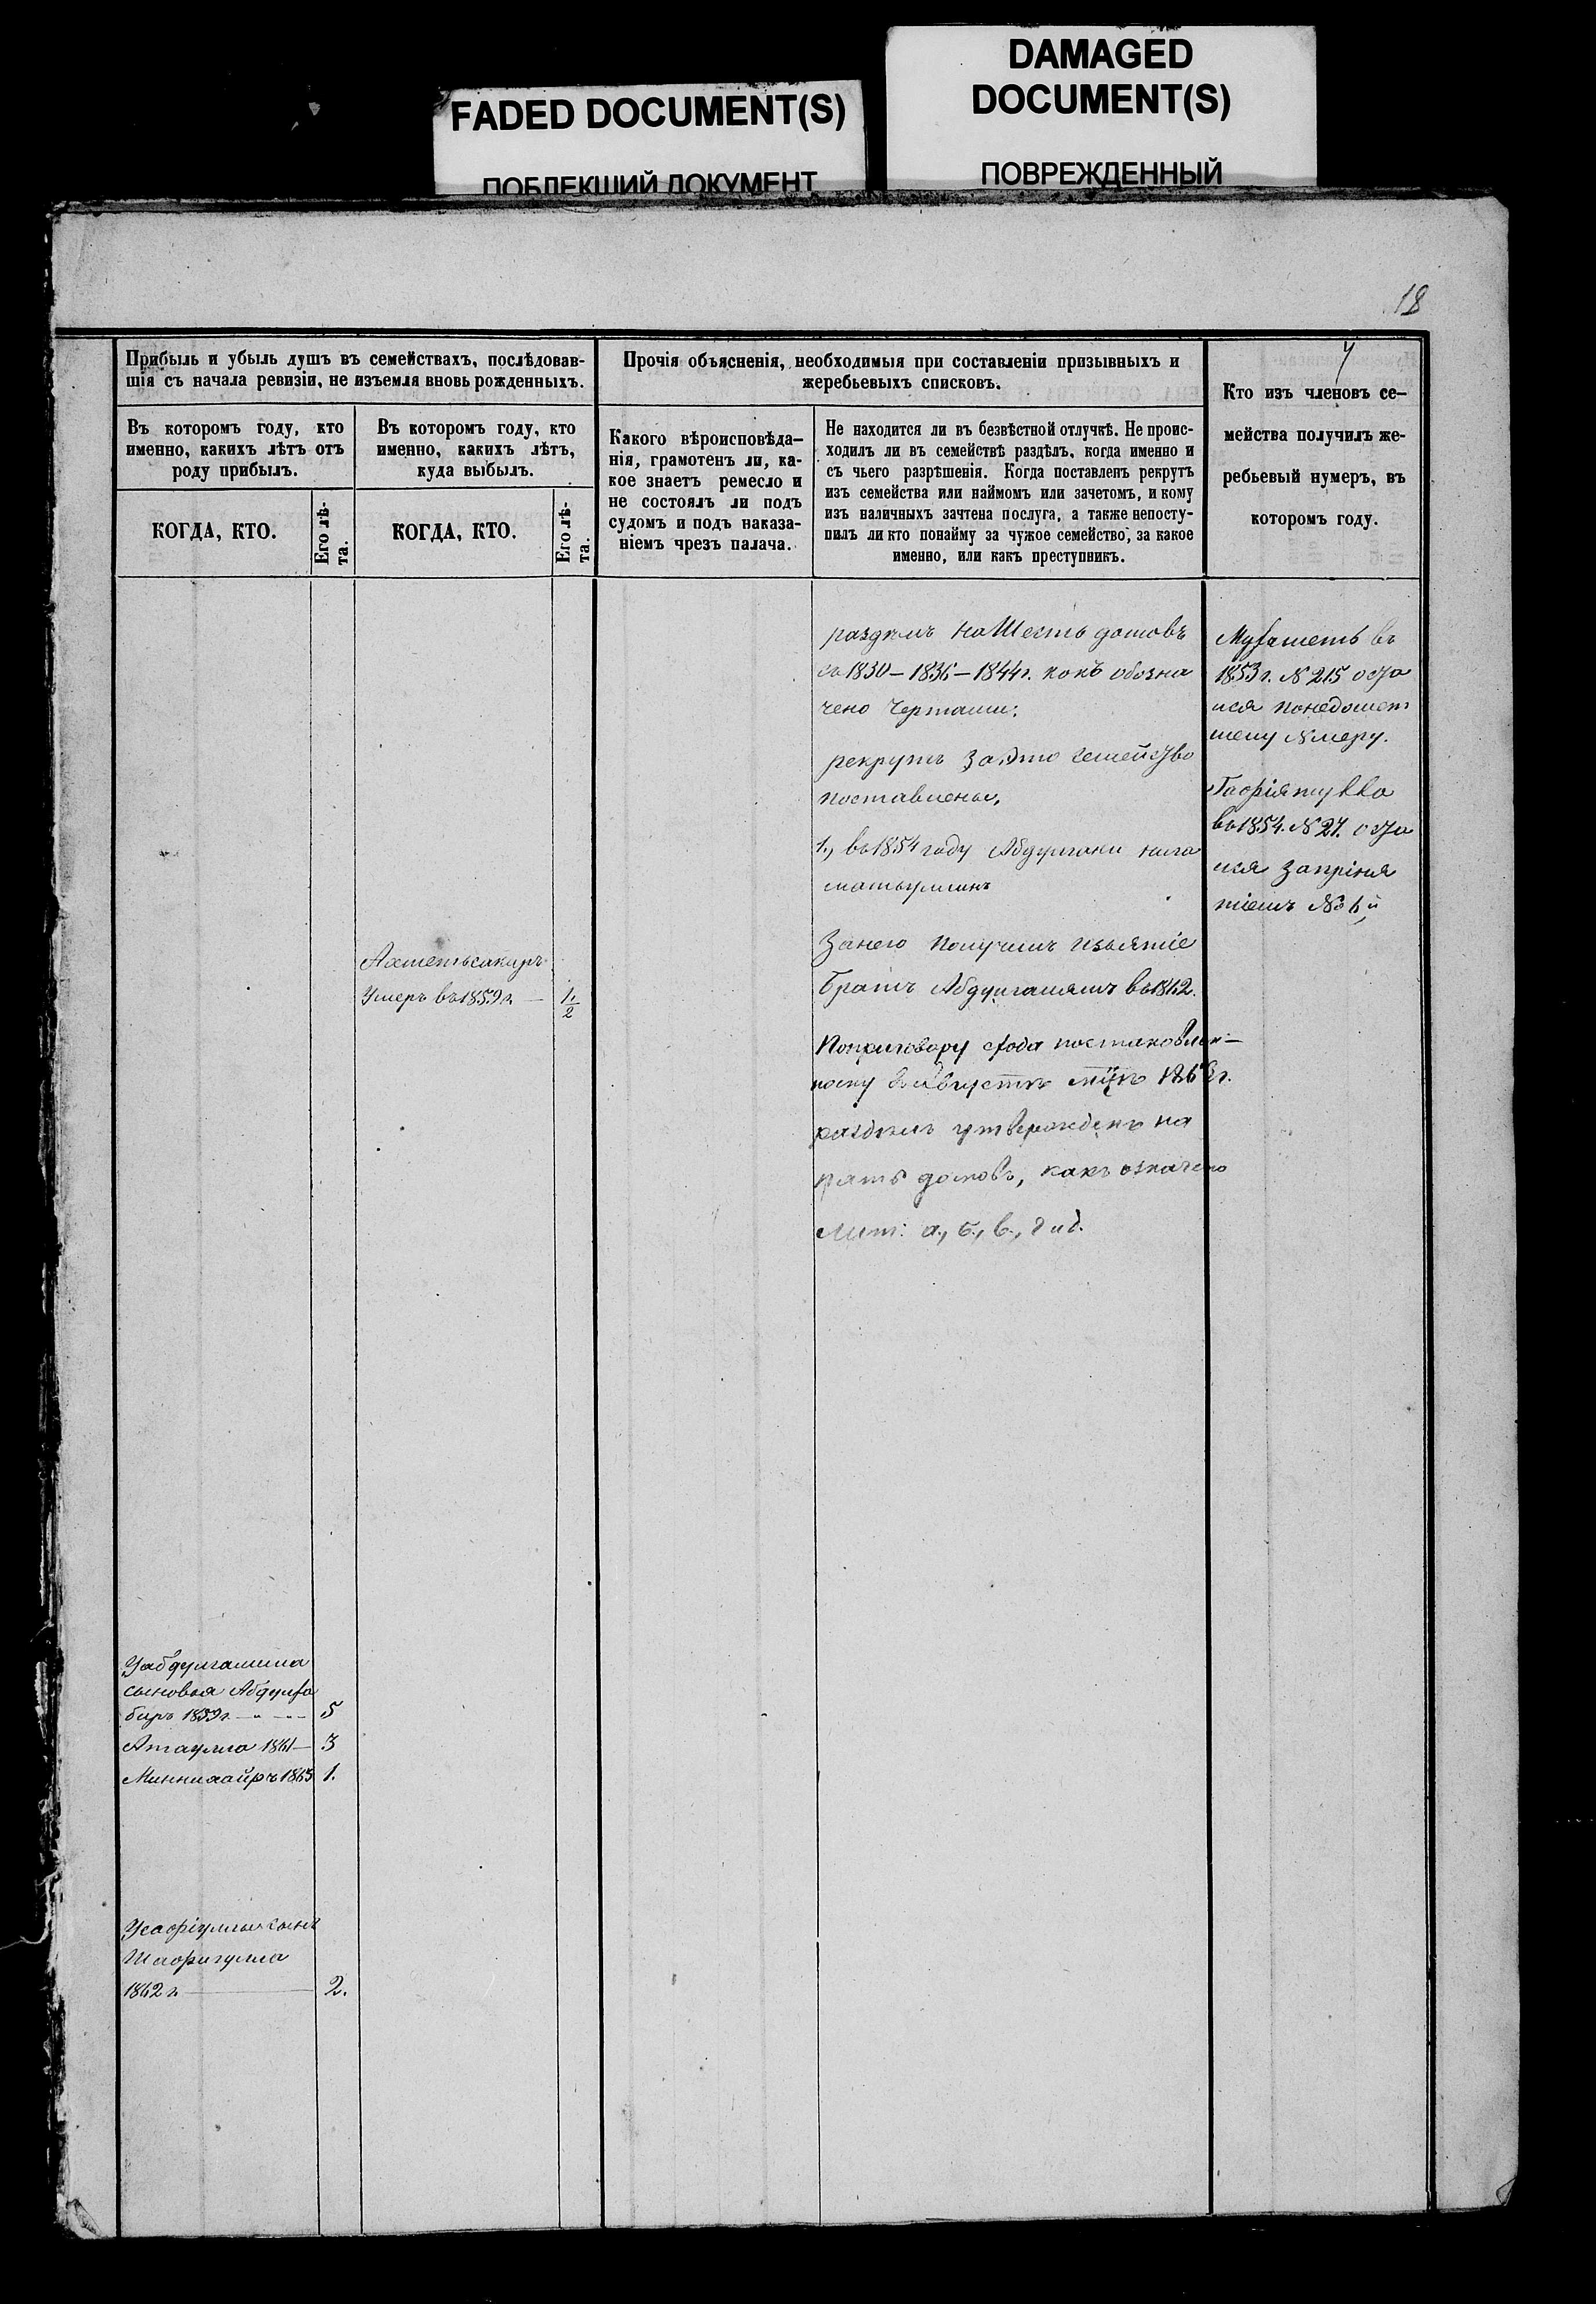 FADED DOCUMENT(S)
ПОБЛЕКШИЙ ДОКУМЕНТ
DAMAGED
DOCUMENT(S)
ПОВРЕЖДЕННЫЙ
18
Прибыль и убыль душъ въ семействахъ, послѣдовав-
шія съ начала ревизіи, не изъемля вновь рожденныхъ.
Въ которомъ году, кто
именно, какихъ лѣтъ отъ
роду прибылъ.
КОГДА, КТО.
Его лѣ-
та.
Въ которомъ году, кто
именно, какихъ лѣтъ,
куда выбылъ.
КОГДА, КТО.
Его лѣ-
та.
Прочія объясненія, необходимыя при составленіи призывныхъ и
жеребьевыхъ списковъ.
Какого вѣроисповѣда-
нія, грамотенъ ли, ка-
кое знаетъ ремесло и
не состоялъ ли подъ
судомъ и подъ наказа-
ніемъ чрезъ палача.
Не находится ли въ безвѣстной отлучкѣ. Не проис-
ходилъ ли въ семействѣ раздѣлъ, когда именно и
съ чьего разрѣшенія. Когда поставленъ рекрутъ
изъ семейства или наймомъ или зачетомъ, и кому
изъ наличныхъ зачтена послуга, а также непосту-
пилъ ли кто понайму за чужое семейство, за какое
именно, или какъ преступникъ.
Кто изъ членовъ се-
мейства получилъ же-
ребьевый нумеръ, въ
которомъ году.
Ахметьсакиръ
Умеръ въ 1859 г. — 1/2
У абдулгалима
сыновья Абдулха
биръ 1859 г. — 5
Атаулла 1861 — 3
Миннихаиръ 1863 1.
сынъ
Шафигулла
1862 г. — 2.
раздѣлъ на Шесть домовъ
съ 1830 – 1836 – 1844 г. какъ обозна
чено Чертами:
рекрутъ за это семейство
поставлены,
1., въ 1854 году Абдулгани
За него получилъ изъятіе
Братъ въ 1862.
По приговору схода постановлен-
ному въ Августѣ м-цѣ 186 г.
раздѣлъ утвержденъ на
пять домовъ, какъ означено
Лит: а., б., в., г и д.
въ
1853 г. N 215 оста
лся
шему Nмеру.
въ 1854. N 27. оста
лся за приня
тіемъ №